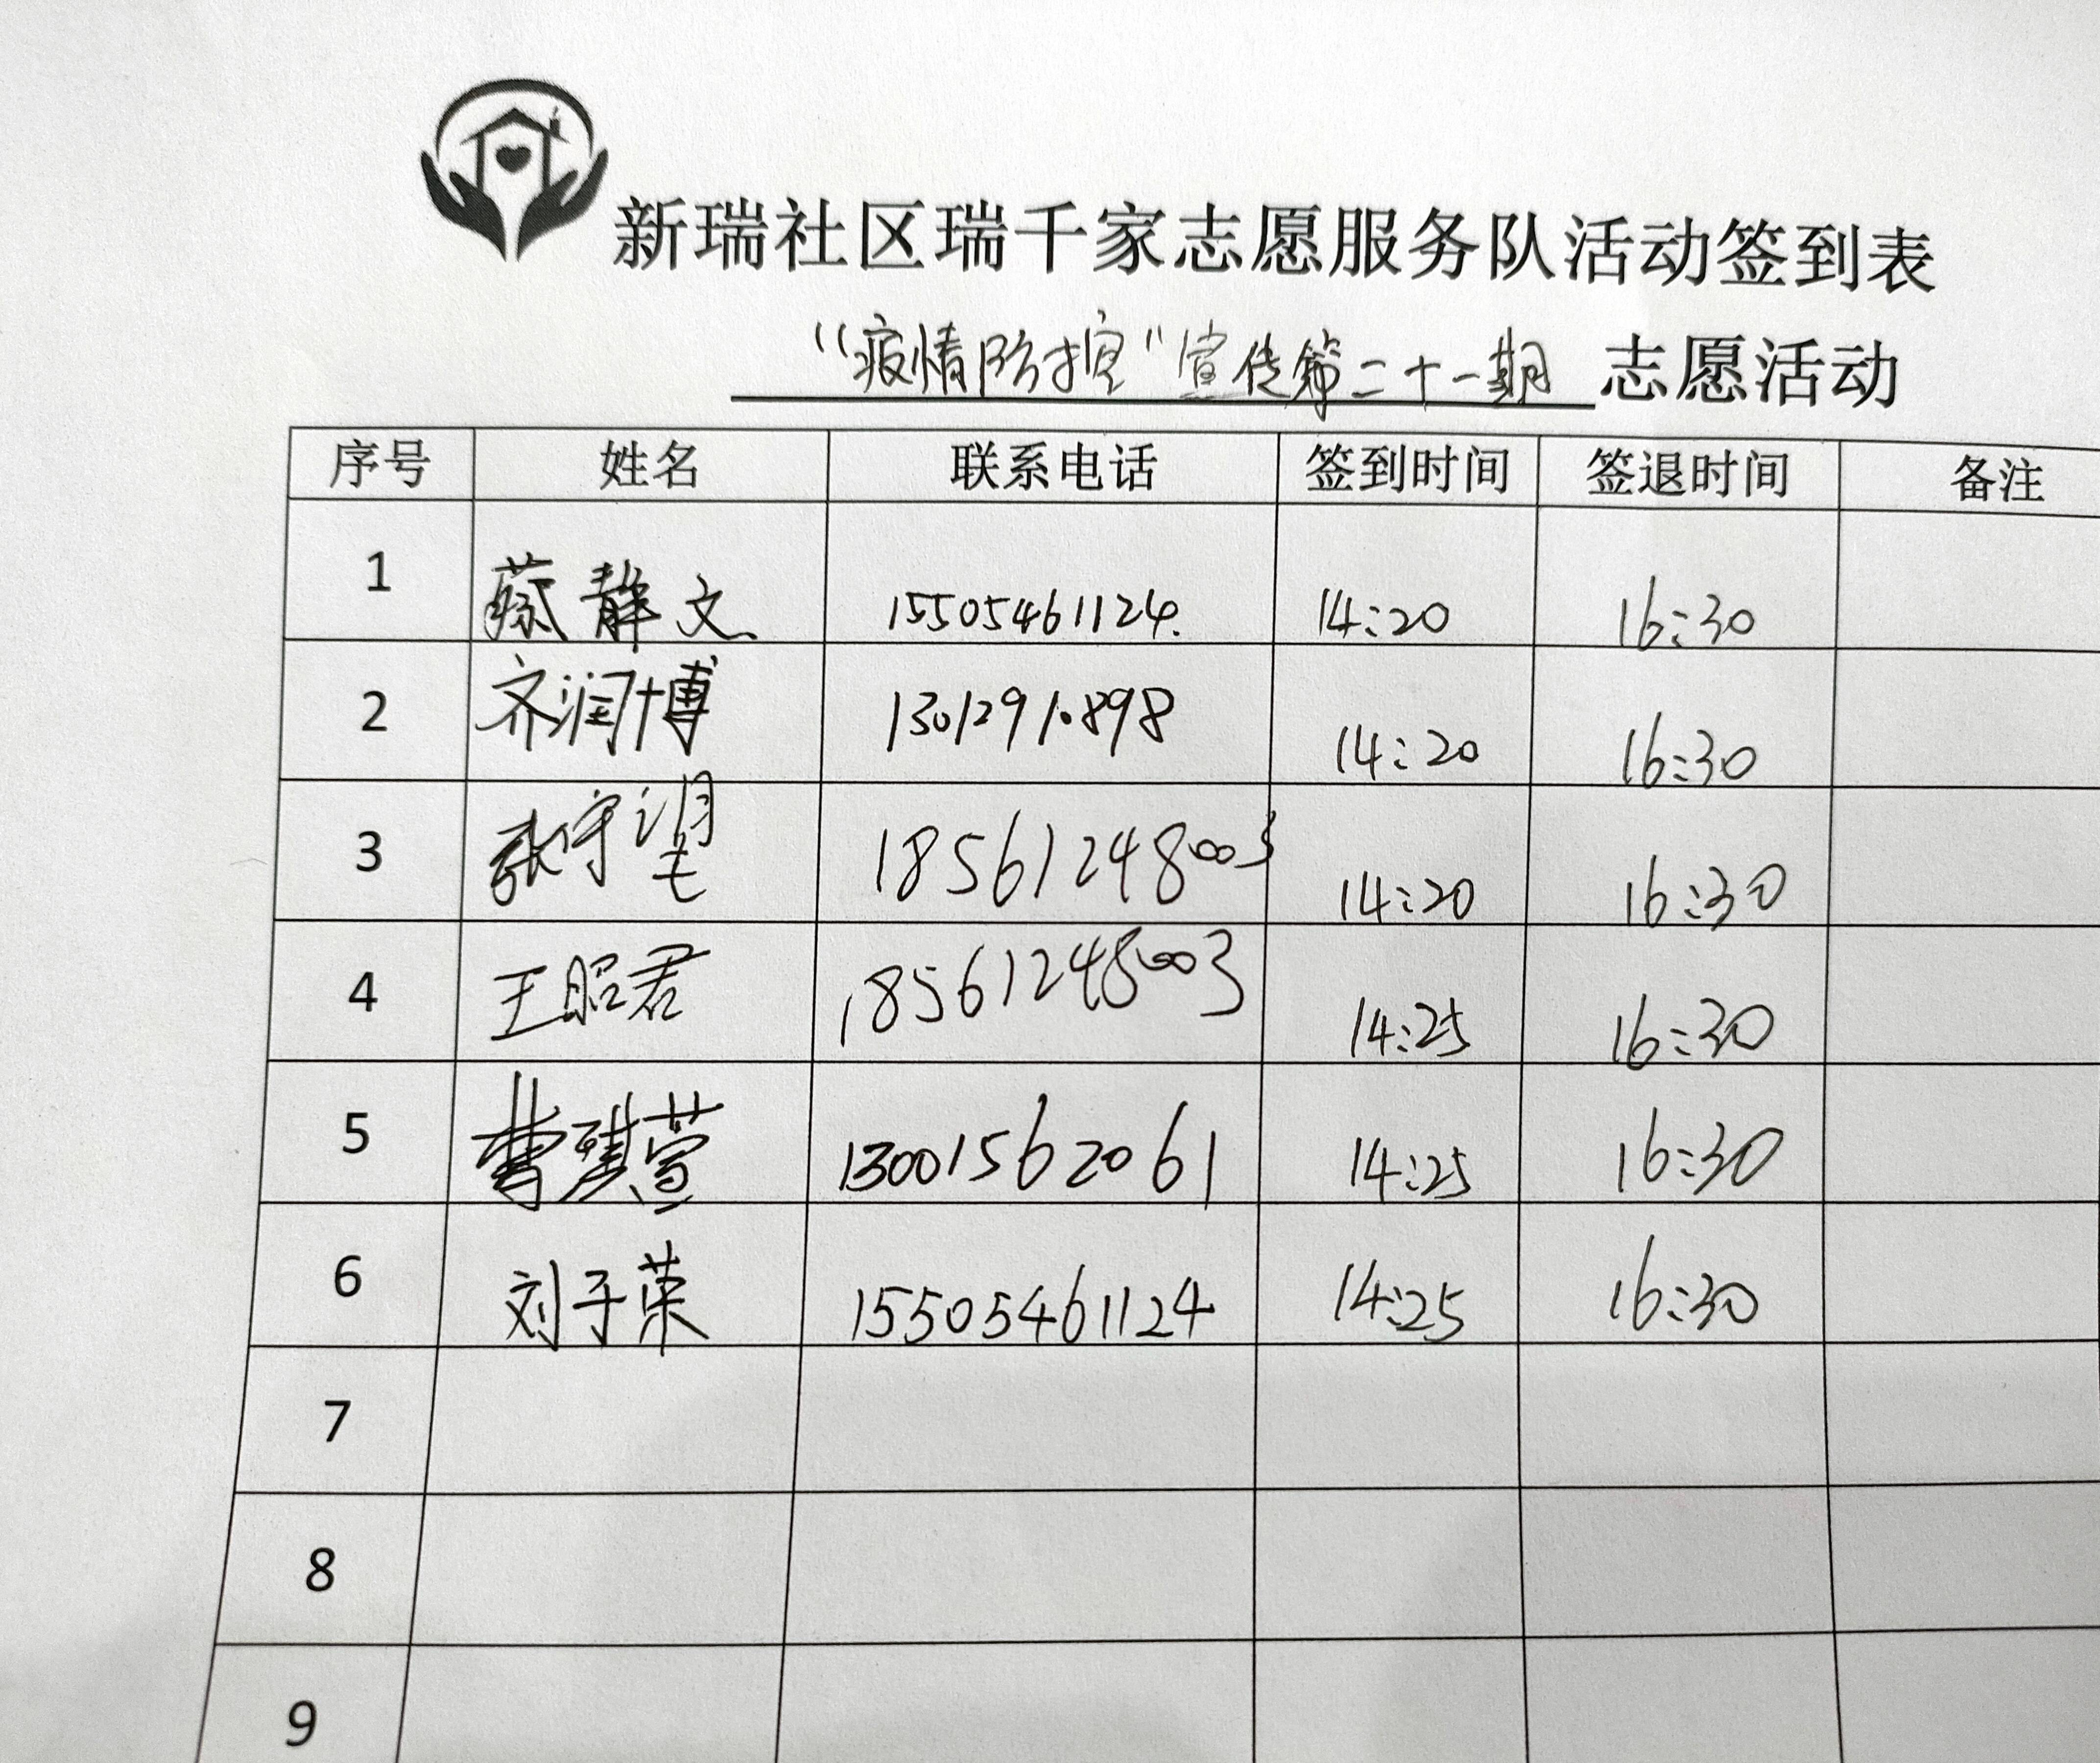 新瑞社区瑞千家志愿服务队活动签到表
“疫情防控”宣传第二十一期 志愿活动
序号 姓名 联系电话 签到时间 签退时间 备注
1 蔡静文 15505461124. 14:20 16:30
2 齐润博 13012910898 14:20 16:30
3 张守望 18561248003 14:20 16:30
4 王昭君 18561248003 14:25 16:30
5 曹琪萱 13001562061 14:25 16:30
6 刘子荣 15505461124 14:25 16:30
7
8
9